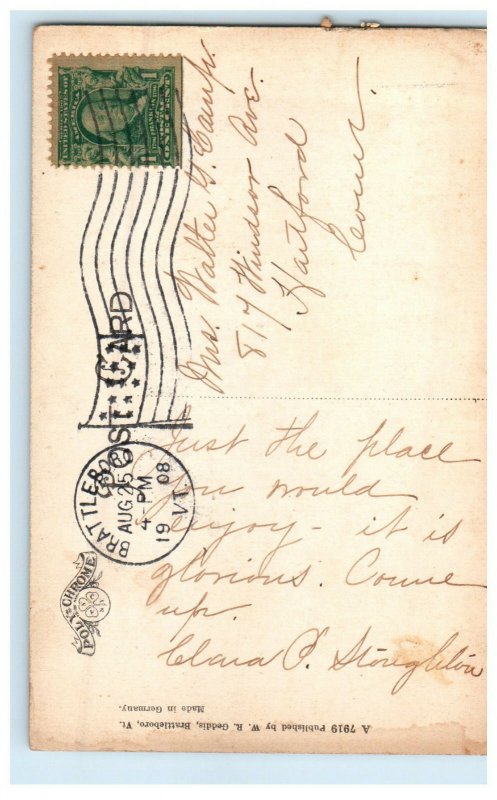 POST CARD
BRATTLEBORO
AUG 25
4-PM
19 08
VT.
UNITED STATES OF AMERICA
1
Mrs. Walter G. Camp.
817 Windsor Ave.
Hartford
Conn.
Just the place
you would
enjoy - it is
glorious. Come
up.
Clara P. Stoughton
POLYCHROME
A 7919 Published by W. R. Geddis, Brattleboro, Vt.
Made in Germany.